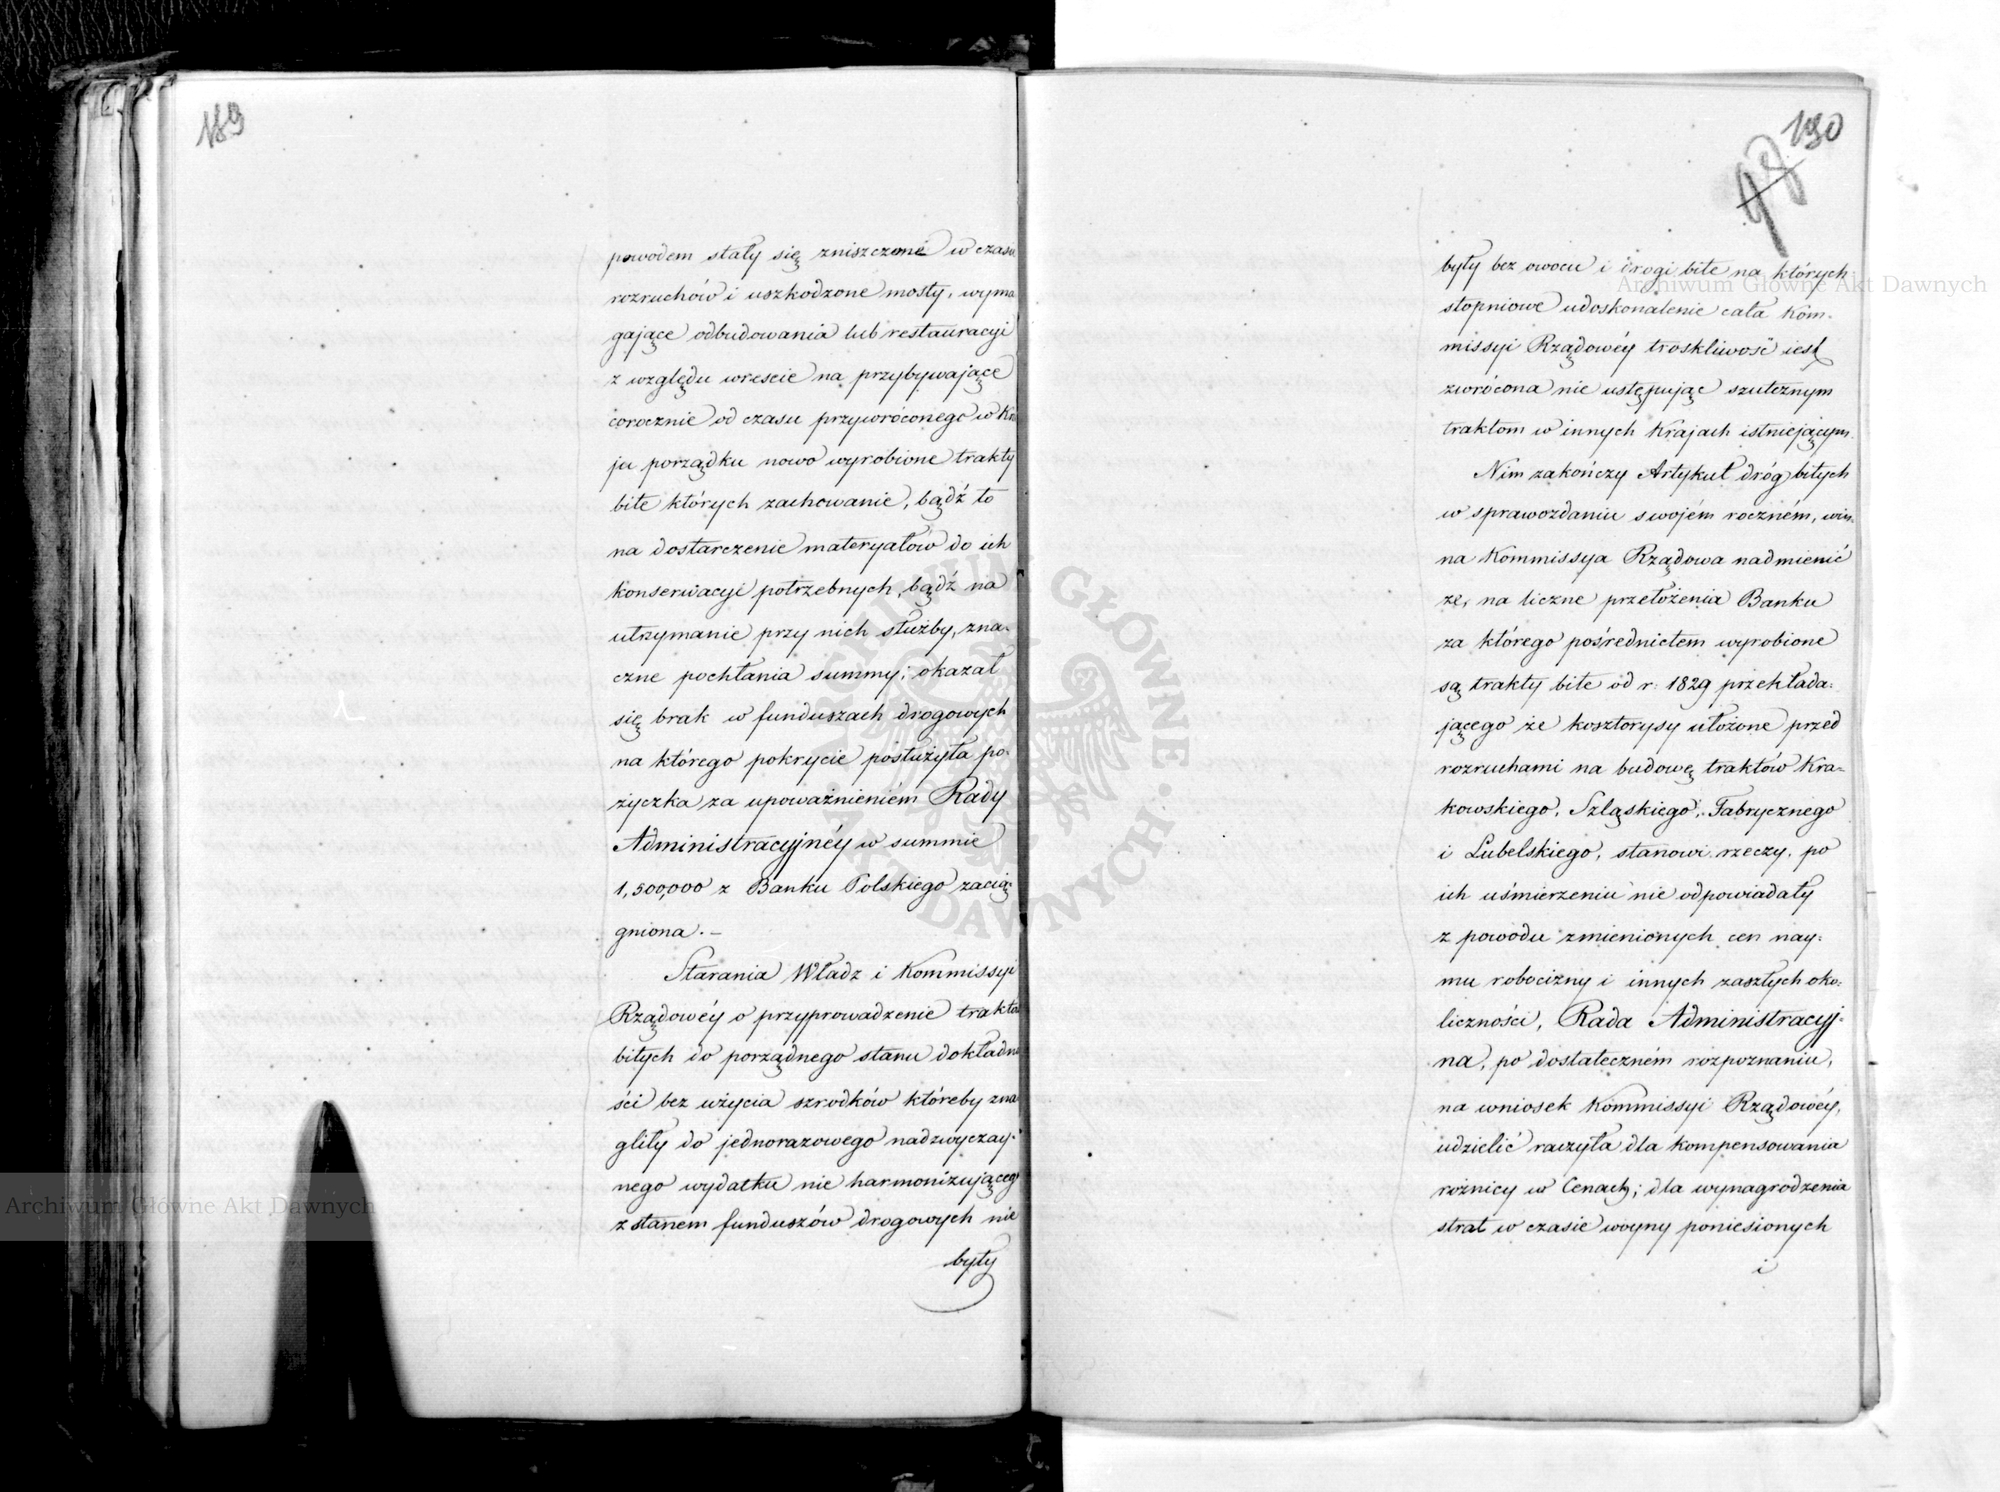 189
powodem stały się zniszczone w czasu
rozruchów i uszkodzone mosty, wyma
gające odbudowania lub restauracyi
z względu wreście na przybywające
corocznie od czasu przywróconego w Kra
ju porządku nowo wyrobione trakty
bite których zachowanie, bądź to
na dostarczenie materyałów do ich
konserwacyi potrzebnych, bądź na
utrzymanie przy nich służby, zna-
czne pochłania summy; okazał
się brak w funduszach drogowych
na którego pokrycie posłużyła po-
życzka za upoważnieniem Rady
Administracyjnéy w summie
1,500,000 z Banku Polskiego zacią-
gniona. –
Starania Władz i Kommissyi
Rządowéy o przyprowadzenie trakto
bitych do porządnego stanu dokładno
ści bez użycia szrodków któreby zna
gliły do jednorazowego nadzwyczay-
nego wydatku nie harmonizującego
z stanem funduszów drogowych nie
były
190
98
były bez owocu i drogi bite na których
stopniowe udoskonalenie cała Kom-
missyi Rządowéy troskliwość iest
zwrócona nie ustępując sztucznym
traktom w innych Krajach istniejącym.
Nim zakończy Artykuł dróg bitych
w sprawozdaniu swojém roczném, win-
na Kommissya Rządowa nadmienić
że, na liczne przełożenia Banku
za którego pośrednictem wyrobione
są trakty bite od r: 1829 przekłada-
jącego że kosztorysy ułożone przed
rozruchami na budowę traktów Kra-
kowskiego, Szląskiego, Fabrycznego
i Lubelskiego, stanowi rzeczy, po
ich uśmierzeniu nie odpowiadały
z powodu zmienionych cen nay-
mu robocizny i innych zaszłych oko-
liczności, Rada Administracyj-
na, po dostateczném rozpoznaniu,
na wniosek Kommissyi Rządowéy,
udzielić raczyła dla kompensowania
różnicy w Cenach; dla wynagrodzenia
strat w czasie woyny poniesionych
i
Archiwum Główne Akt Dawnych
Archiwum Główne Akt Dawnych
ARCHIWUM GŁÓWNE AKT DAWNYCH